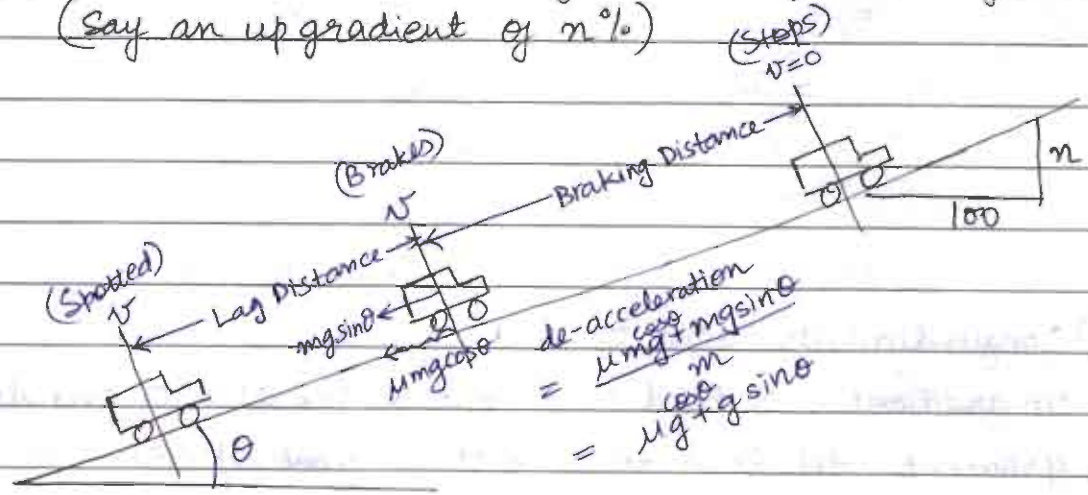 (Say an upgradient of n%)
(Stops)
v=0
(Brakes)
v
Braking Distance
n
100
(Spotted)
v
Lag Distance
mgsinθ
μmgcosθ
de-acceleration
= μmgcosθ + mgsinθ
m
= μgcosθ + gsinθ
θ